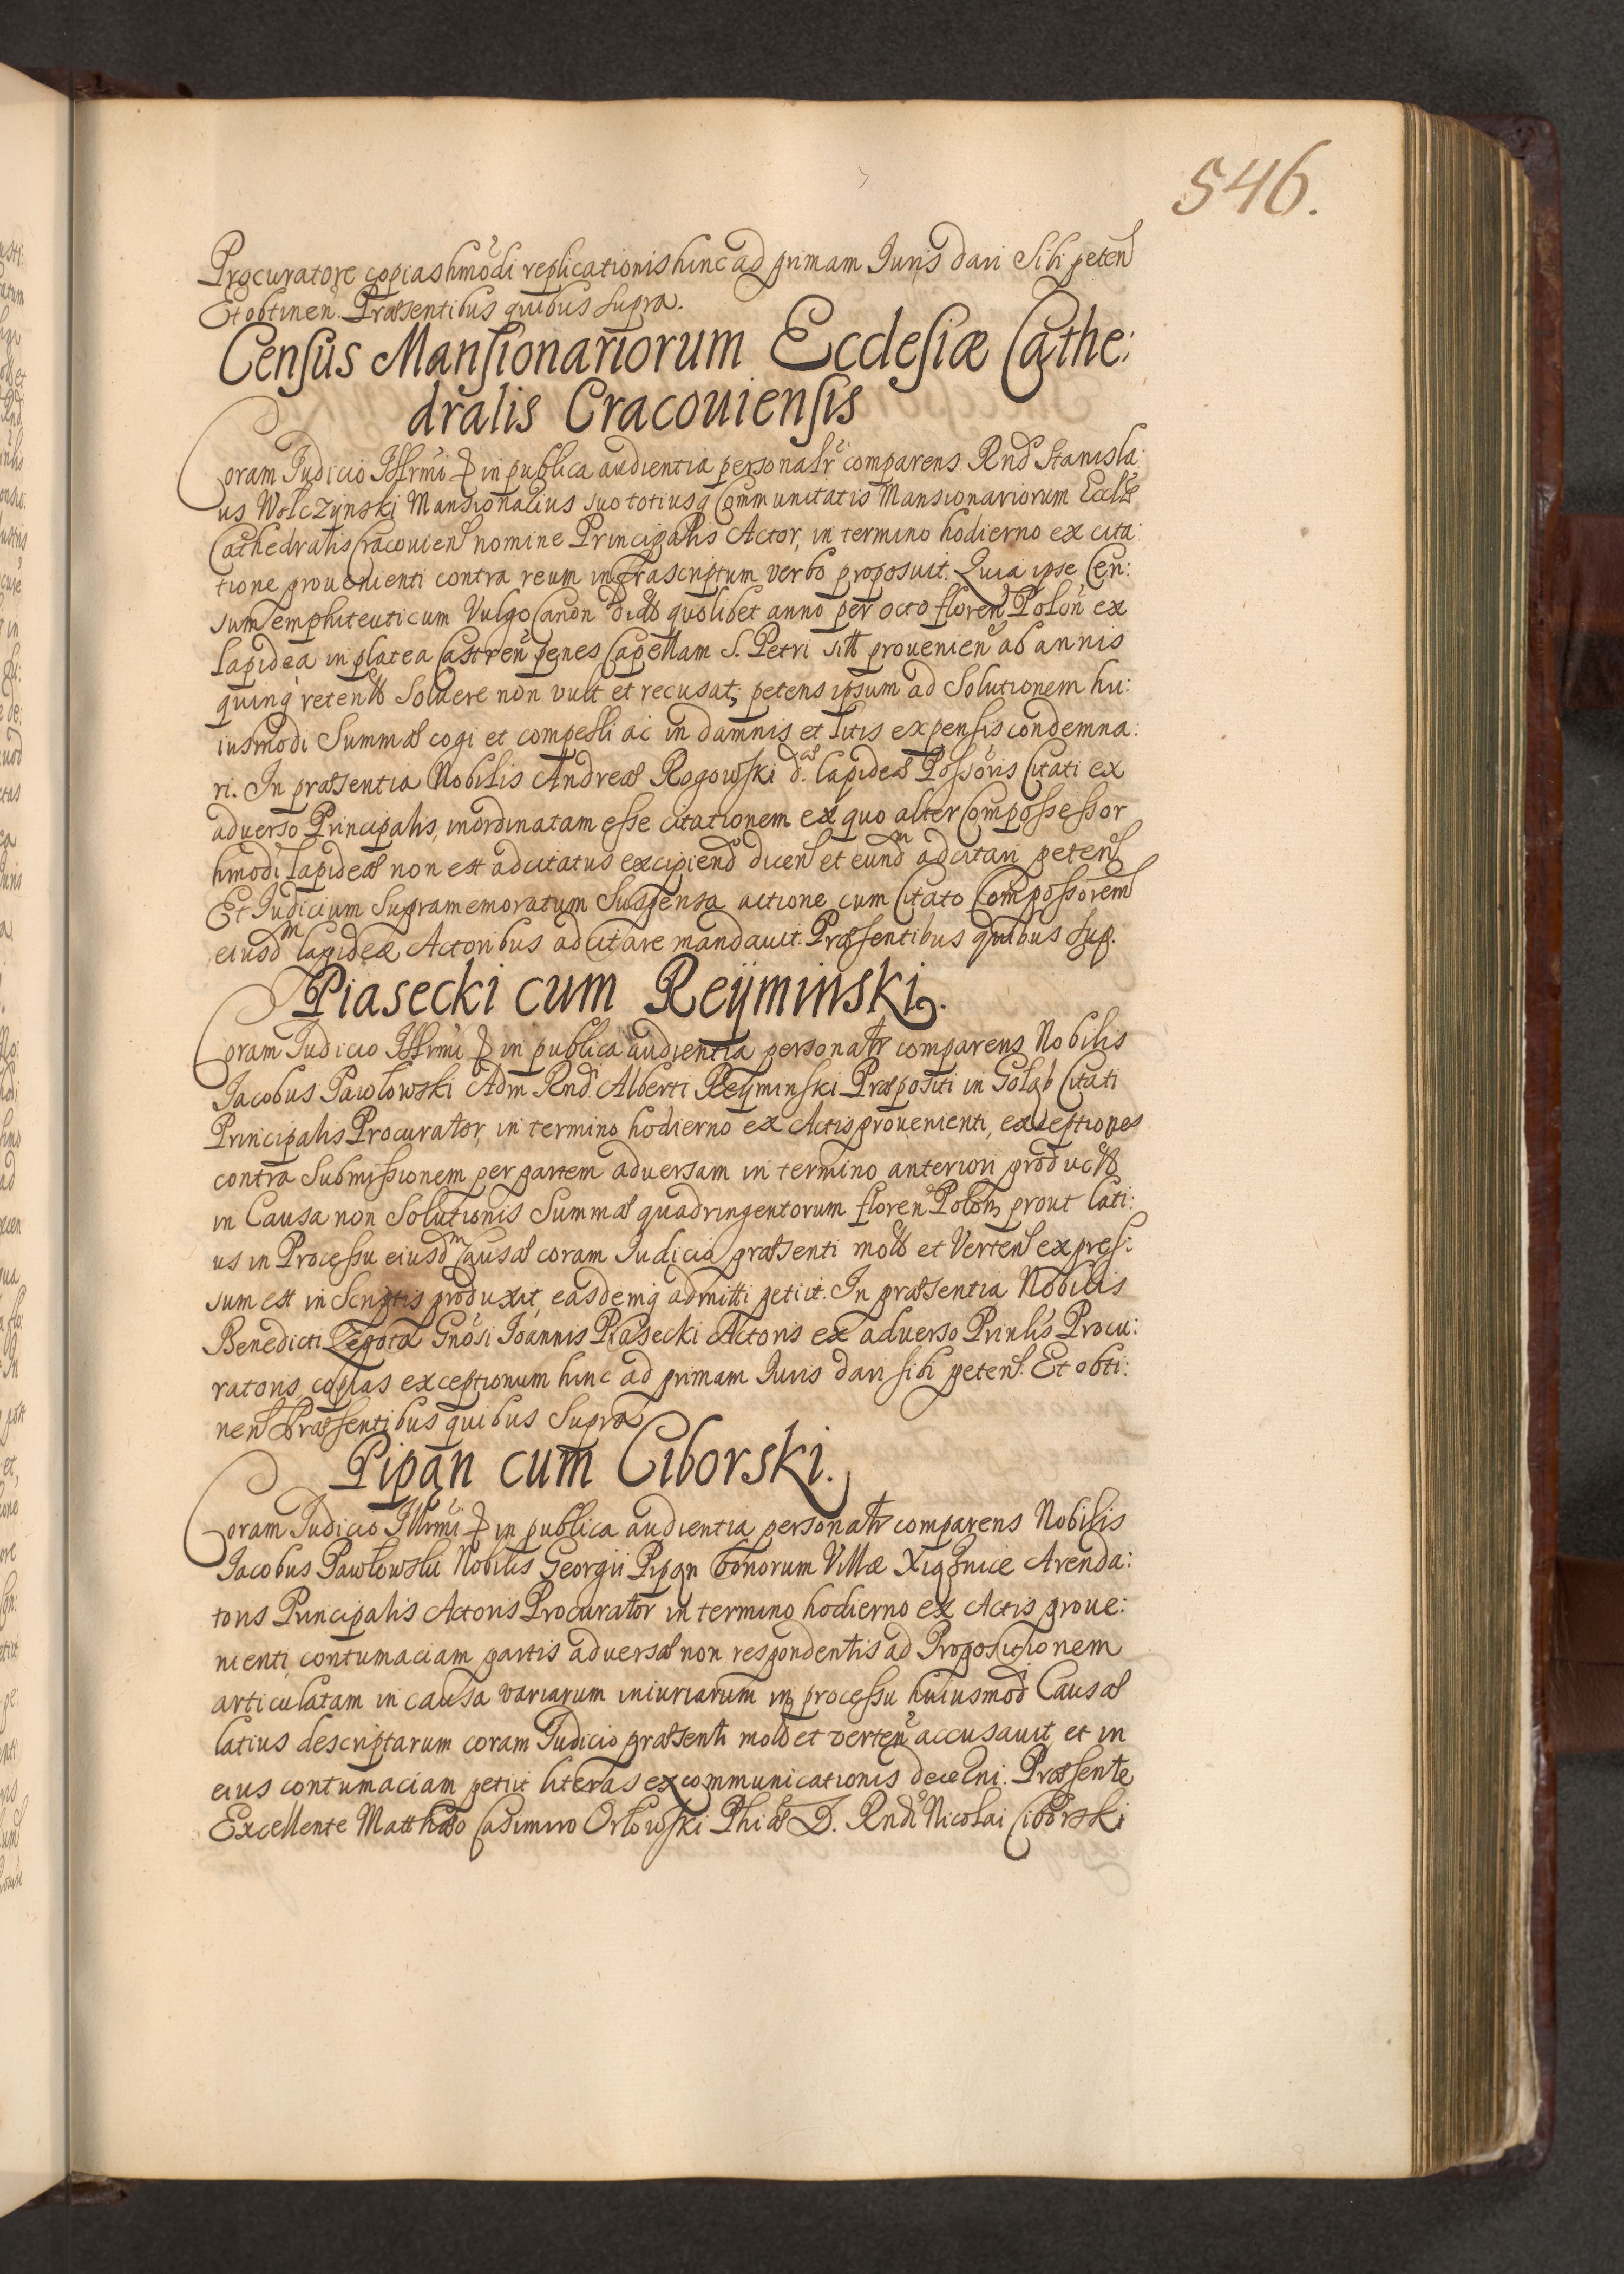 546.
Procuratore copias hmõdi replicationis hinc ad primam Juris dari sibi peten
Et obtinen. Præsentibus quibus supra.
Census Mansionariorum Ecclesiæ Cathe:
dralis Cracouiensis
Coram Judicio Illrmi in publica audientia personalr comparens Rnd Stanisla:
us Wolczynski Mansionarius suo totiusq Communitatis Mansionariorum Eccliæ
Cathedralis Cracouien nomine Principalis Actor, in termino hodierno ex cita:
tione prouenienti contra reum infrascriptum verbo proposuit. Quia ipse Cen:
sum emphiteuticum Vulgo Canon quolibet anno per octo floren Polon ex
lapidea in platea Castren penes Capellam S. Petri sitt prouenien ab annis
quinq retent soluere non vult et recusat; petens ipsum ad Solutionem hu:
iusmodi Summæ cogi et compelli ac in damnis et litis expensis condemna:
ri. In præsentia Nobilis Andreæ Rogowski d.æ lapideæ Possoris Citati ex
aduerso Principalis, inordinatam esse citationem ex quo alter Compossessor
hmodi lapideæ non est adcitatus excipiend dicen et eundm adcitari peten
Et Judicium supramemoratum suspensa actione cum Citato Compossorem
eiusdm lapideæ Actoribus adcitare mandauit. Præsentibus quibus sup.
Piasecki cum Reÿminski.
Coram Judicio Illrmi in publica audientia personalr comparens Nobilis
Jacobus Pawlowski Adm Rnd Alberti Reÿminski Præpositi in Goląb Citati
Principalis Procurator, in termino hodierno ex Actis prouenienti, exceptiones
contra Submissionem per partem aduersam in termino anteriori product
in Causa non Solutionis Summæ quadringentorum floren Polon, prout lati:
us in Processu eiusdm Causæ coram Judicio præsenti mot et Verten expres:
sum est in Scriptis produxit, easdemq admitti petiit. In præsentia Nobilis
Benedicti Zegota Gnosi Joannis Piasecki Actoris ex aduerso Prinlis Procu:
ratoris copias exceptionum hinc ad primam Juris dari sibi peten. Et obti:
nen Præsentibus quibus Supra
Pipąn cum Ciborski.
Coram Judicio Illrmi in publica audientia personalr comparens Nobilis
Jacobus Pawlowski Nobilis Georgii Pipąn bonorum Villæ Xiąznice Arenda:
toris Principalis Actoris Procurator in termino hodierno ex Actis proue:
nienti contumaciam partis aduersæ non respondentis ad Propositionem
articulatam in causa variarum iniuriarum in processu huiusmodi Causæ
latius descriptarum coram Judicio præsenti mot et verten accusauit et in
eius contumaciam petiit literas excommunicationis decerni. Præsente
Excellente Matthæo Casimiro Orlowski Phiæ D. Rndi Nicolai Ciborski